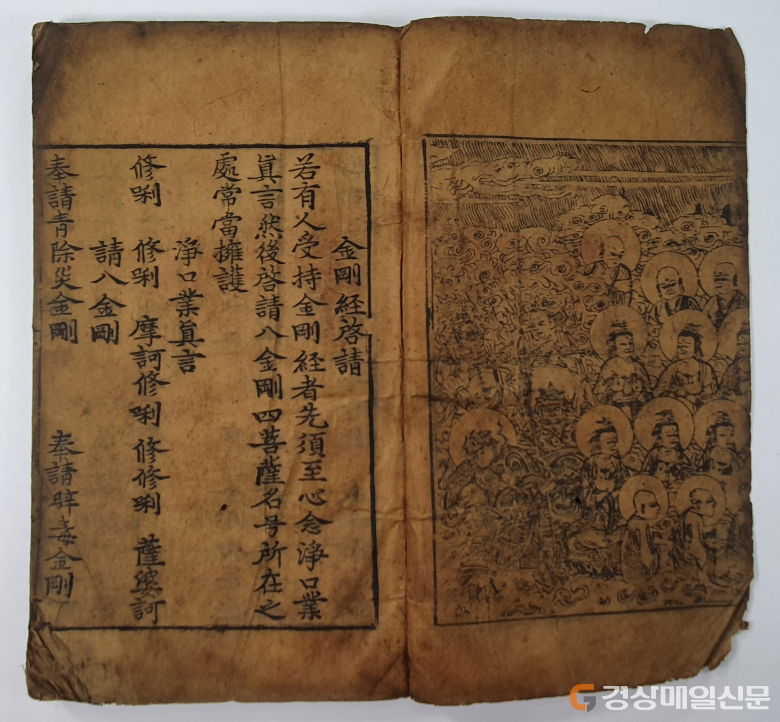 金剛經啓請
若有人受持金剛經者先須至心念淨口業
眞言然後啓請八金剛四菩薩名号所在之
處常當擁護
淨口業眞言
修唎 修唎 摩訶修唎 修修唎 薩婆訶
請八金剛
奉請青除災金剛 奉請辟毒金剛
경상매일신문